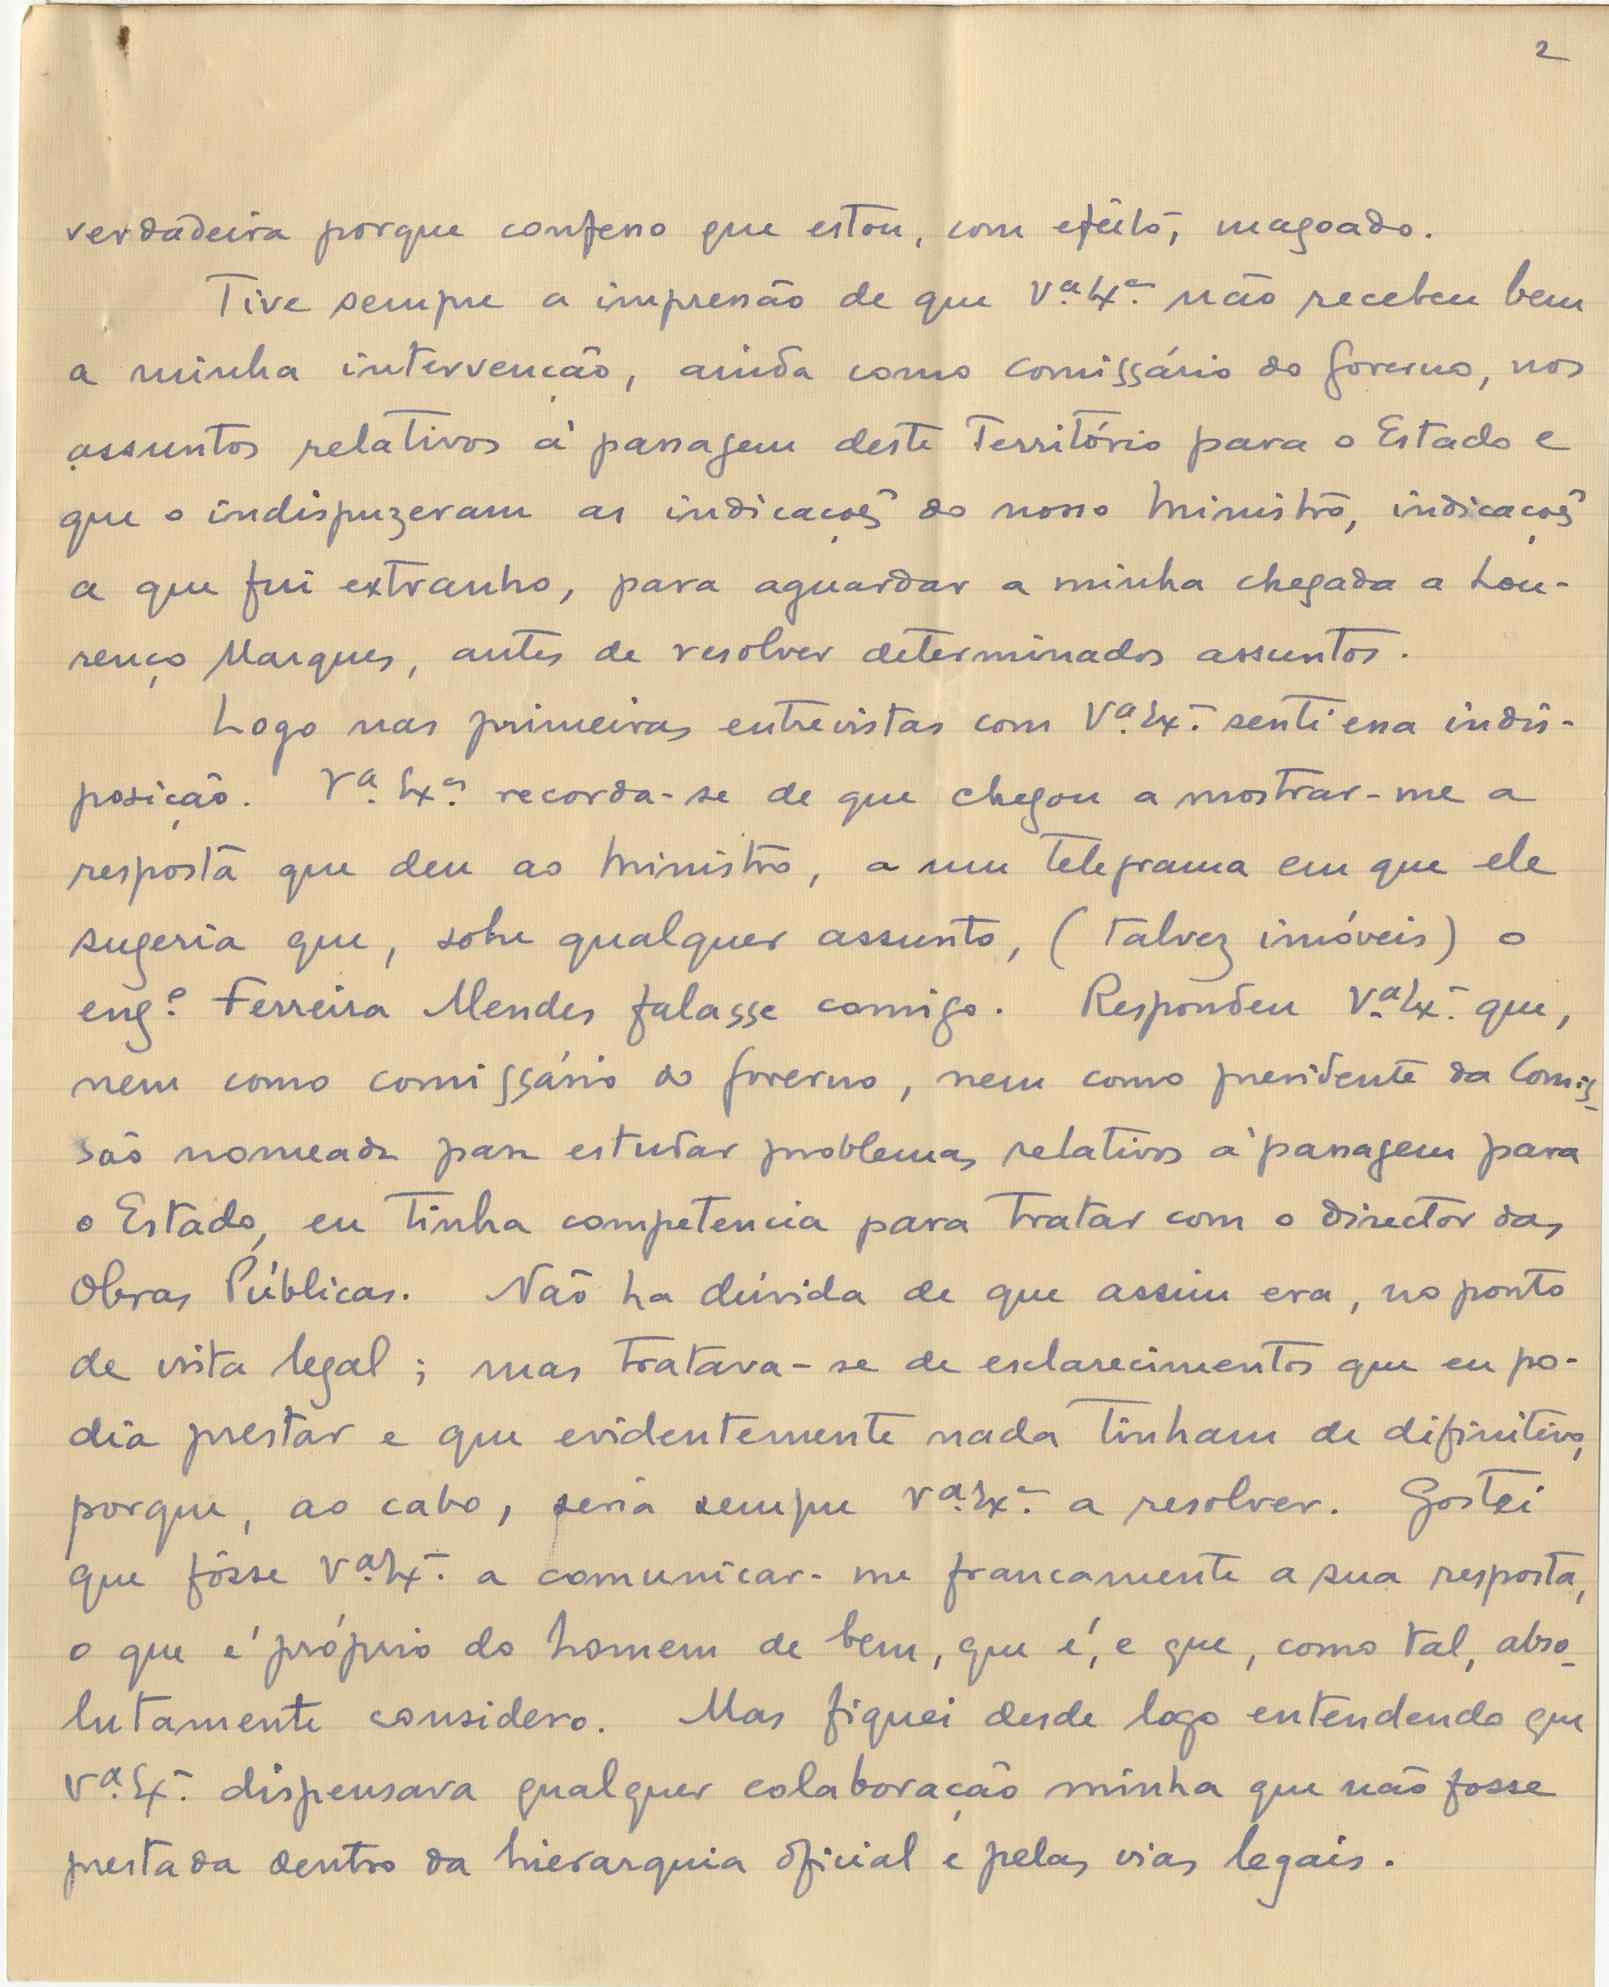 2
verdadeira porque confesso que estou, com efeito, magoado.
Tive sempre a impressão de que V.ª Ex.ª não recebeu bem
a minha intervenção, ainda como comissário do Governo, nos
assuntos relativos à passagem deste Território para o Estado e
que o indispuzeram as indicações do nosso Ministro, indicações
a que fui extranho, para aguardar a minha chegada a Lou-
renço Marques, antes de resolver determinados assuntos.
Logo nas primeiras entrevistas com V.ª Ex.ª senti essa indis-
posição. V.ª Ex.ª recorda-se de que chegou a mostrar-me a
resposta que deu ao Ministro, a um telegrama em que ele
sugeria que, sobre qualquer assunto, (talvez imóveis) o
eng.º Ferreira Mendes falasse comigo. Respondeu V.ª Ex.ª que,
nem como comissário do Governo, nem como presidente da Comis-
são nomeada para estudar problemas relativos à passagem para
o Estado, eu tinha competencia para tratar com o director das
Obras Públicas. Não ha dúvida de que assim era, no ponto
de vista legal; mas tratava-se de esclarecimentos que eu po-
dia prestar e que evidentemente nada tinham de difinitivo,
porque, ao cabo, seria sempre V.ª Ex.ª a resolver. Gostei
que fôsse V.ª Ex.ª a comunicar-me francamente a sua resposta,
o que é próprio do homem de bem, que é, e que, como tal, abso-
lutamente considero. Mas fiquei desde logo entendendo que
V.ª Ex.ª dispensava qualquer colaboração minha que não fosse
prestada dentro da hierarquia oficial e pelas vias legais.